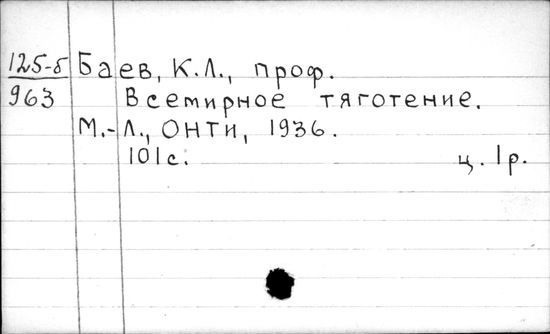 125-б
963
Баев, К.Л., проф.
Всемирное тяготение.
М.-Л., ОНТИ, 1936.
101с. ц. 1р.